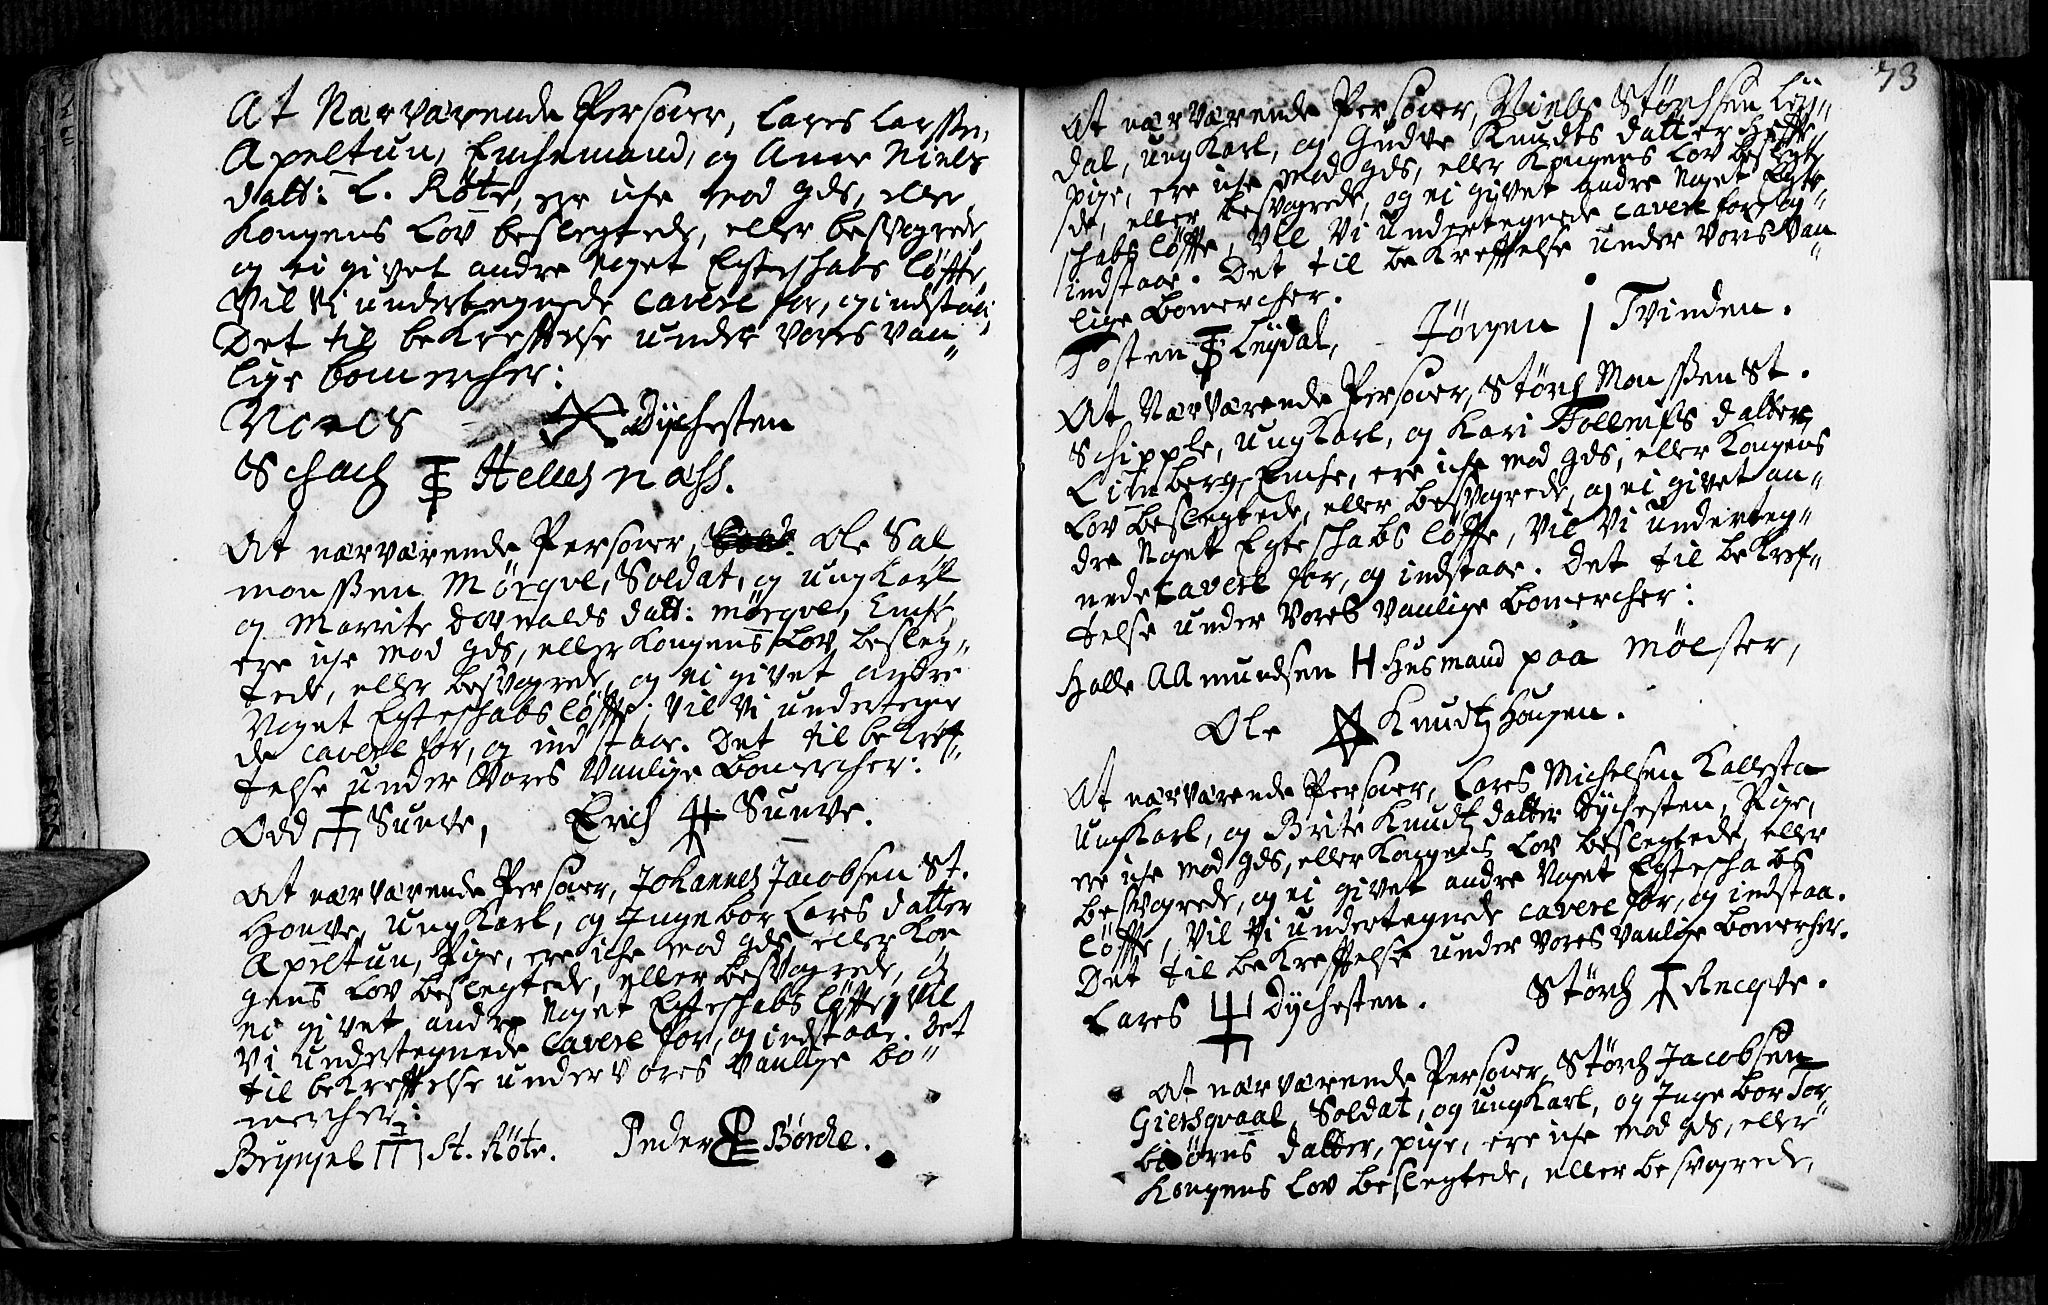 At Nærværende Personer, Lares Larssen,
Apeltun, Enchemand, og Anne Niels
datt: L. Röte, ere iche mod gds, eller
Kongens Lov beslegtede, eller besvogrede,
og ei givet andre Noget Egteschabs löffte,
Vil Vi undertegnede cavere for, og indstaa;
Det til bekrefftelse under Vores Van„
lige bomercher:
Dÿchesten
Schach Hellesnass.
At nærværende Personer, Ole Sal
monssen Mörqve, Soldat, og ungKarl,
og Marrite datt: mörqve, Enche,
ere iche mod gds, eller Kongens Lov besleg„
tede, eller besvogrede, og ei givet andre
Noget Egteschabs löffte, Vil Vi undertegne
de cavere for, og indstaae. Det til bekreff„
telse under Vores Vanlige Bomercher:
Odd Sunve, Erich Sunve.
At nærværende Personer, Johannes Jacobsen St.
Honve, ungKarl, og Ingebor Lares datter
Apeltun, Pige, ere iche mod gds, eller Kon
gens Lov beslegtede, eller besvogrede, og
ei givet andre Noget Egteschabs löffte, Vil
Vi undertegnede cavere for, og indstaae. Det
til bekrefftelse under Vores Vanlige bo„
mercher:
Brynjel St. Röte. Peder Börche.
73
At nærværende Personer, Niels Störchsen Lÿ„
dal, ungKarl, og Gudve Knudts datter
pige, ere iche mod gds, eller Kongens Lov beslegte
de, eller besvogrede, og ei givet andre Noget Egte
schabs löffte, Vil Vi undertegnede cavere for, og
indstaae. Det til bekrefftelse under Voris Van„
lige Bomercher.
Tosten Lÿdal, Jörgen Tvinden.
At Nærværende Personer, Störch Monssen St.
Schipple, ungKarl, og Kari Tollenfs datter,
Limberg, Enche, ere iche mod gds, eller Kongens
Lov beslegtede, eller besvogrede, og ei givet an„
dre Noget Egteschabs löffte, Vil Vi underteg„
nede cavere for, og indstaae. Det til bekref„
telse under Vores Vanlige Bomercher:
Halle AAmundsen H Husmand paa Mölster,
Ole Knudtz Hougen.
At nærværende Personer, Lares Michelsen Kallesta
ungKarl, og Brite Knudtz datter Dÿchesten, Pige,
ere iche mod gds, eller Kongens Lov beslegtede, eller
besvogrede, og ei givet andre Noget Egteschabs
löffte, Vil Vi undertegnede cavere for, og indstaa.
Det til bekrefftelse under Vores Vanlige Bomercher.
Lares Dÿchesten. Störch Recqve.
At nærværende Personer, Störch Jacobsen
Giersqvaal, Soldat, og ungKarl, og Ingebor Tor
biörns datter, pige, ere iche mod gds, eller
Kongens Lov beslegtede, eller besvogrede,